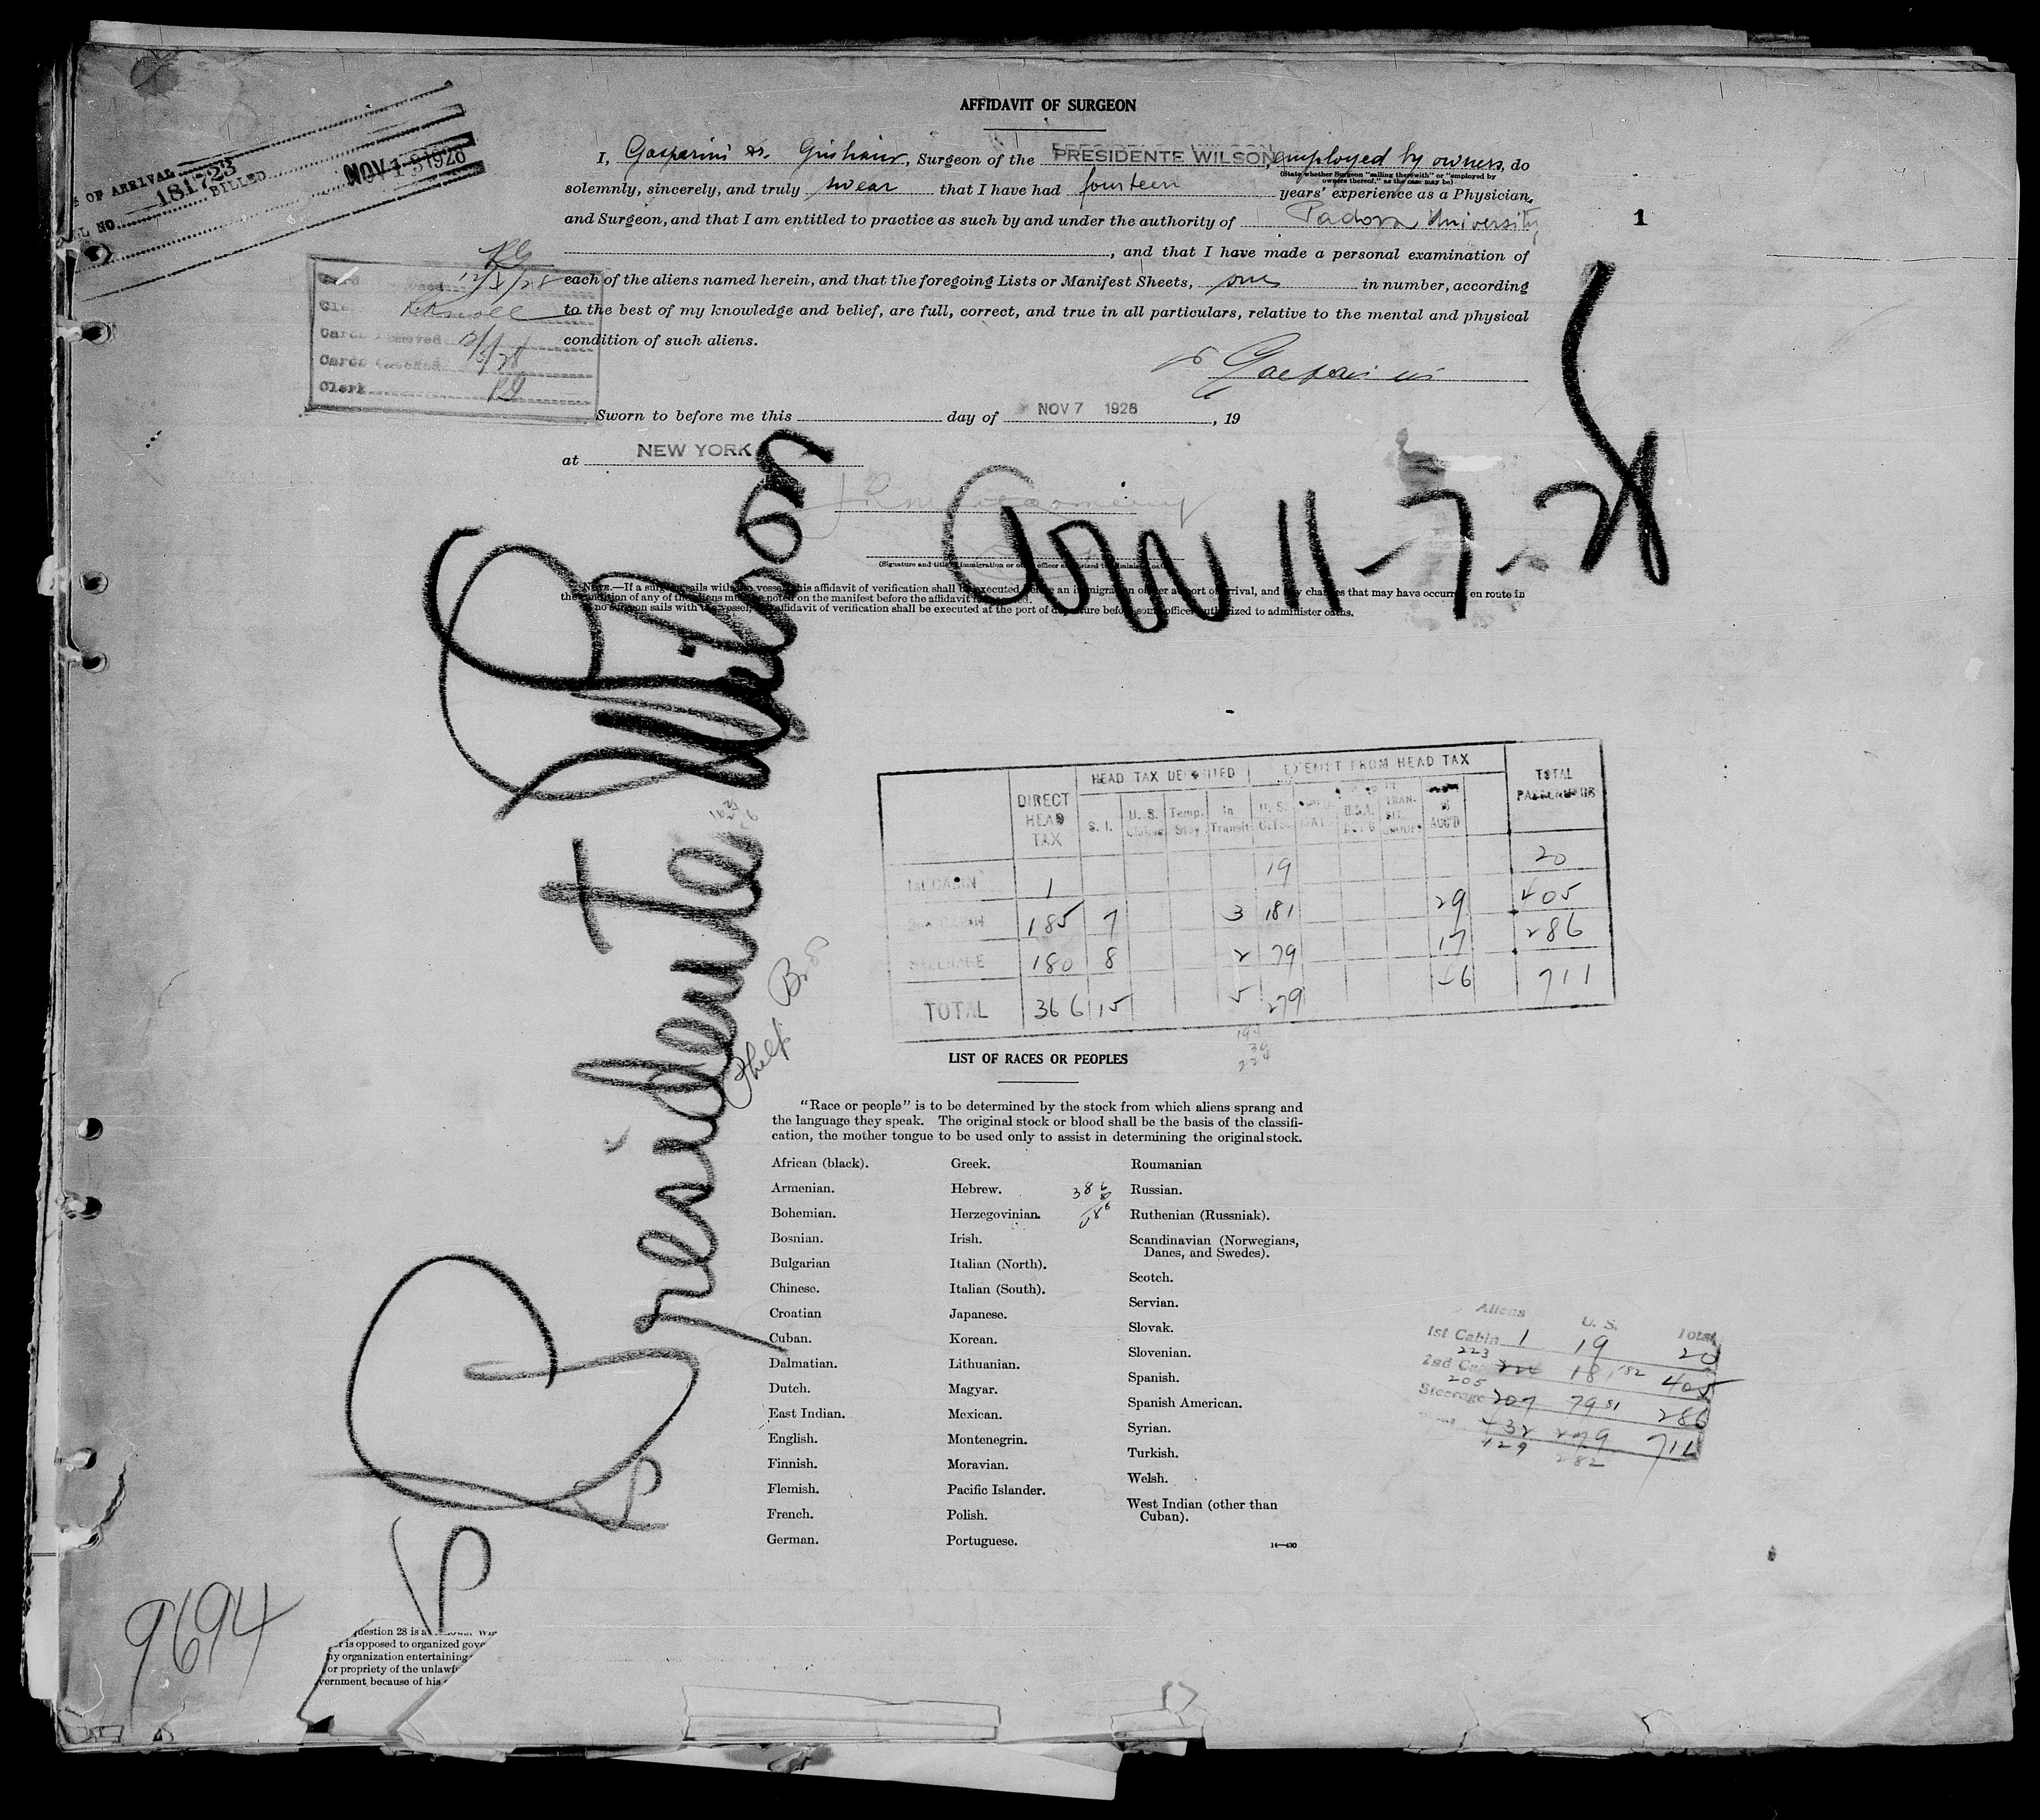 AFFIDAVIT OF SURGEON
I, Gasparini Dr. , Surgeon of the PRESIDENTE WILSON, employed by owners, do
(State whether Surgeon "sailing therewith" or "employed by
owners thereof," as the case may be)
solemnly, sincerely, and truly swear that I have had fourteen years' experience as a Physician
and Surgeon, and that I am entitled to practice as such by and under the authority of Padova University
, and that I have made a personal examination of
each of the aliens named herein, and that the foregoing Lists or Manifest Sheets, one in number, according
to the best of my knowledge and belief, are full, correct, and true in all particulars, relative to the mental and physical
condition of such aliens.
Dr Gasparini
Sworn to before me this day of NOV 7 1928, 19
at NEW YORK
OF ARRIVAL
NO. 181723 BILLED NOV 13 1928
1
RG
12/X/28
Cards Removed
Clerk
RG
Presidente Wilson
Arr 11-7-28
(Signature and title of immigration or other officer authorized to administer oaths)
NOTE.—If a surgeon sails with the vessel, this affidavit of verification shall be executed before an immigration officer at port of arrival, and any changes that may have occurred en route in
the condition of any of the aliens must be noted on the manifest before the affidavit is executed.
If no surgeon sails with the vessel, the affidavit of verification shall be executed at the port of departure before some officer authorized to administer oaths.
HEAD TAX DEPOSITED EXEMPT FROM HEAD TAX
DIRECT HEAD TAX S. I. U. S. Temp. Stay In Transit U. S. TRAN. ACC'D TOTAL PASSENGERS
1st CABIN 1 19 20
2nd CABIN 185 7 3 181 29 405
STEERAGE 180 8 2 79 17 286
TOTAL 366 15 5 279 46 711
Phelps Bros
LIST OF RACES OR PEOPLES
"Race or people" is to be determined by the stock from which aliens sprang and
the language they speak. The original stock or blood shall be the basis of the classifi-
cation, the mother tongue to be used only to assist in determining the original stock.
African (black).
Armenian.
Bohemian.
Bosnian.
Bulgarian
Chinese.
Croatian
Cuban.
Dalmatian.
Dutch.
East Indian.
English.
Finnish.
Flemish.
French.
German.
Greek.
Hebrew.
Herzegovinian.
Irish.
Italian (North).
Italian (South).
Japanese.
Korean.
Lithuanian.
Magyar.
Mexican.
Montenegrin.
Moravian.
Pacific Islander.
Polish.
Portuguese.
Roumanian
Russian.
Ruthenian (Russniak).
Scandinavian (Norwegians,
Danes, and Swedes).
Scotch.
Servian.
Slovak.
Slovenian.
Spanish.
Spanish American.
Syrian.
Turkish.
Welsh.
West Indian (other than
Cuban).
14—430
Aliens U. S. Total
1st Cabin 1 19 20
223
2nd Cab 181 182 405
205
Steerage 207 79 81 286
432 279 711
429 282
9694
question 28 is a
is opposed to organized gove
ny organization entertaining
or propriety of the unlawf
vernment because of his
17